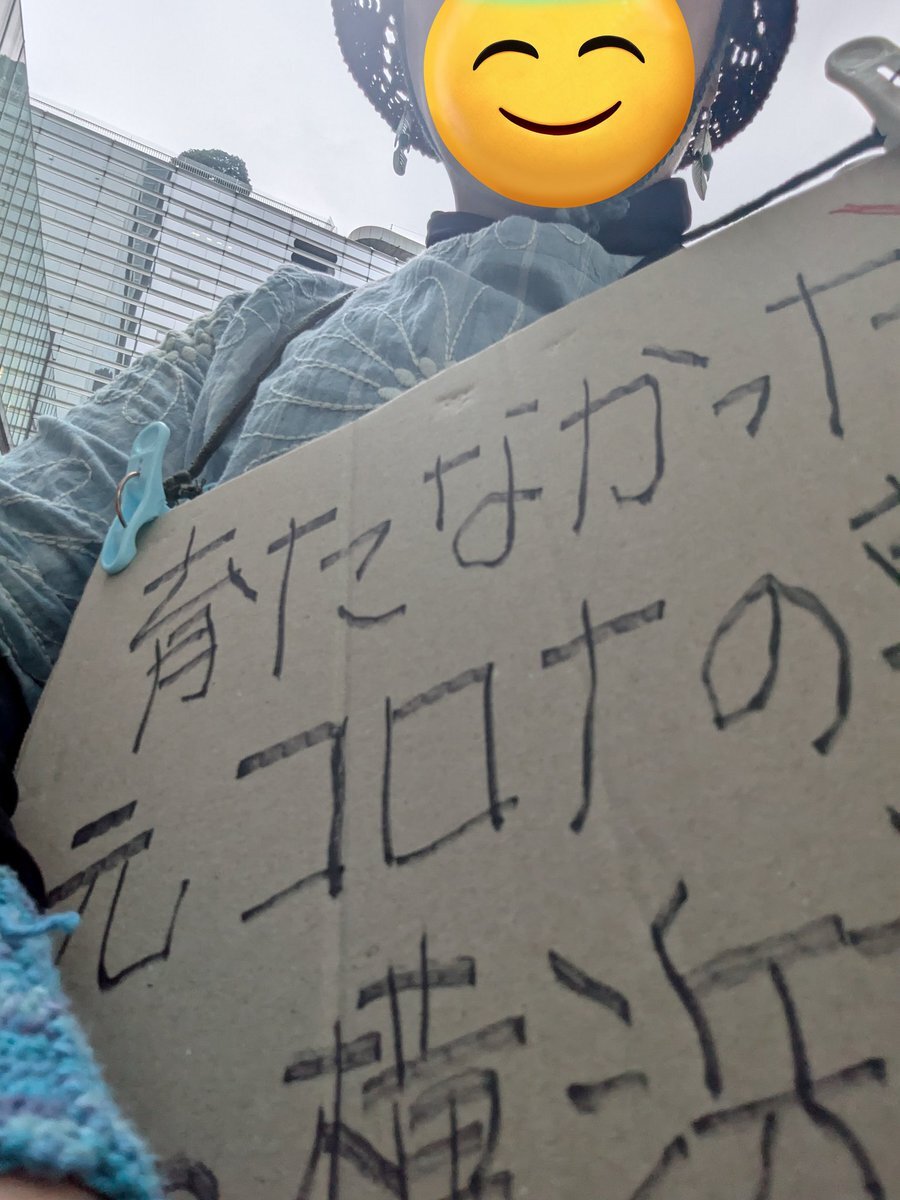 育たなかった
元コロナの
横浜